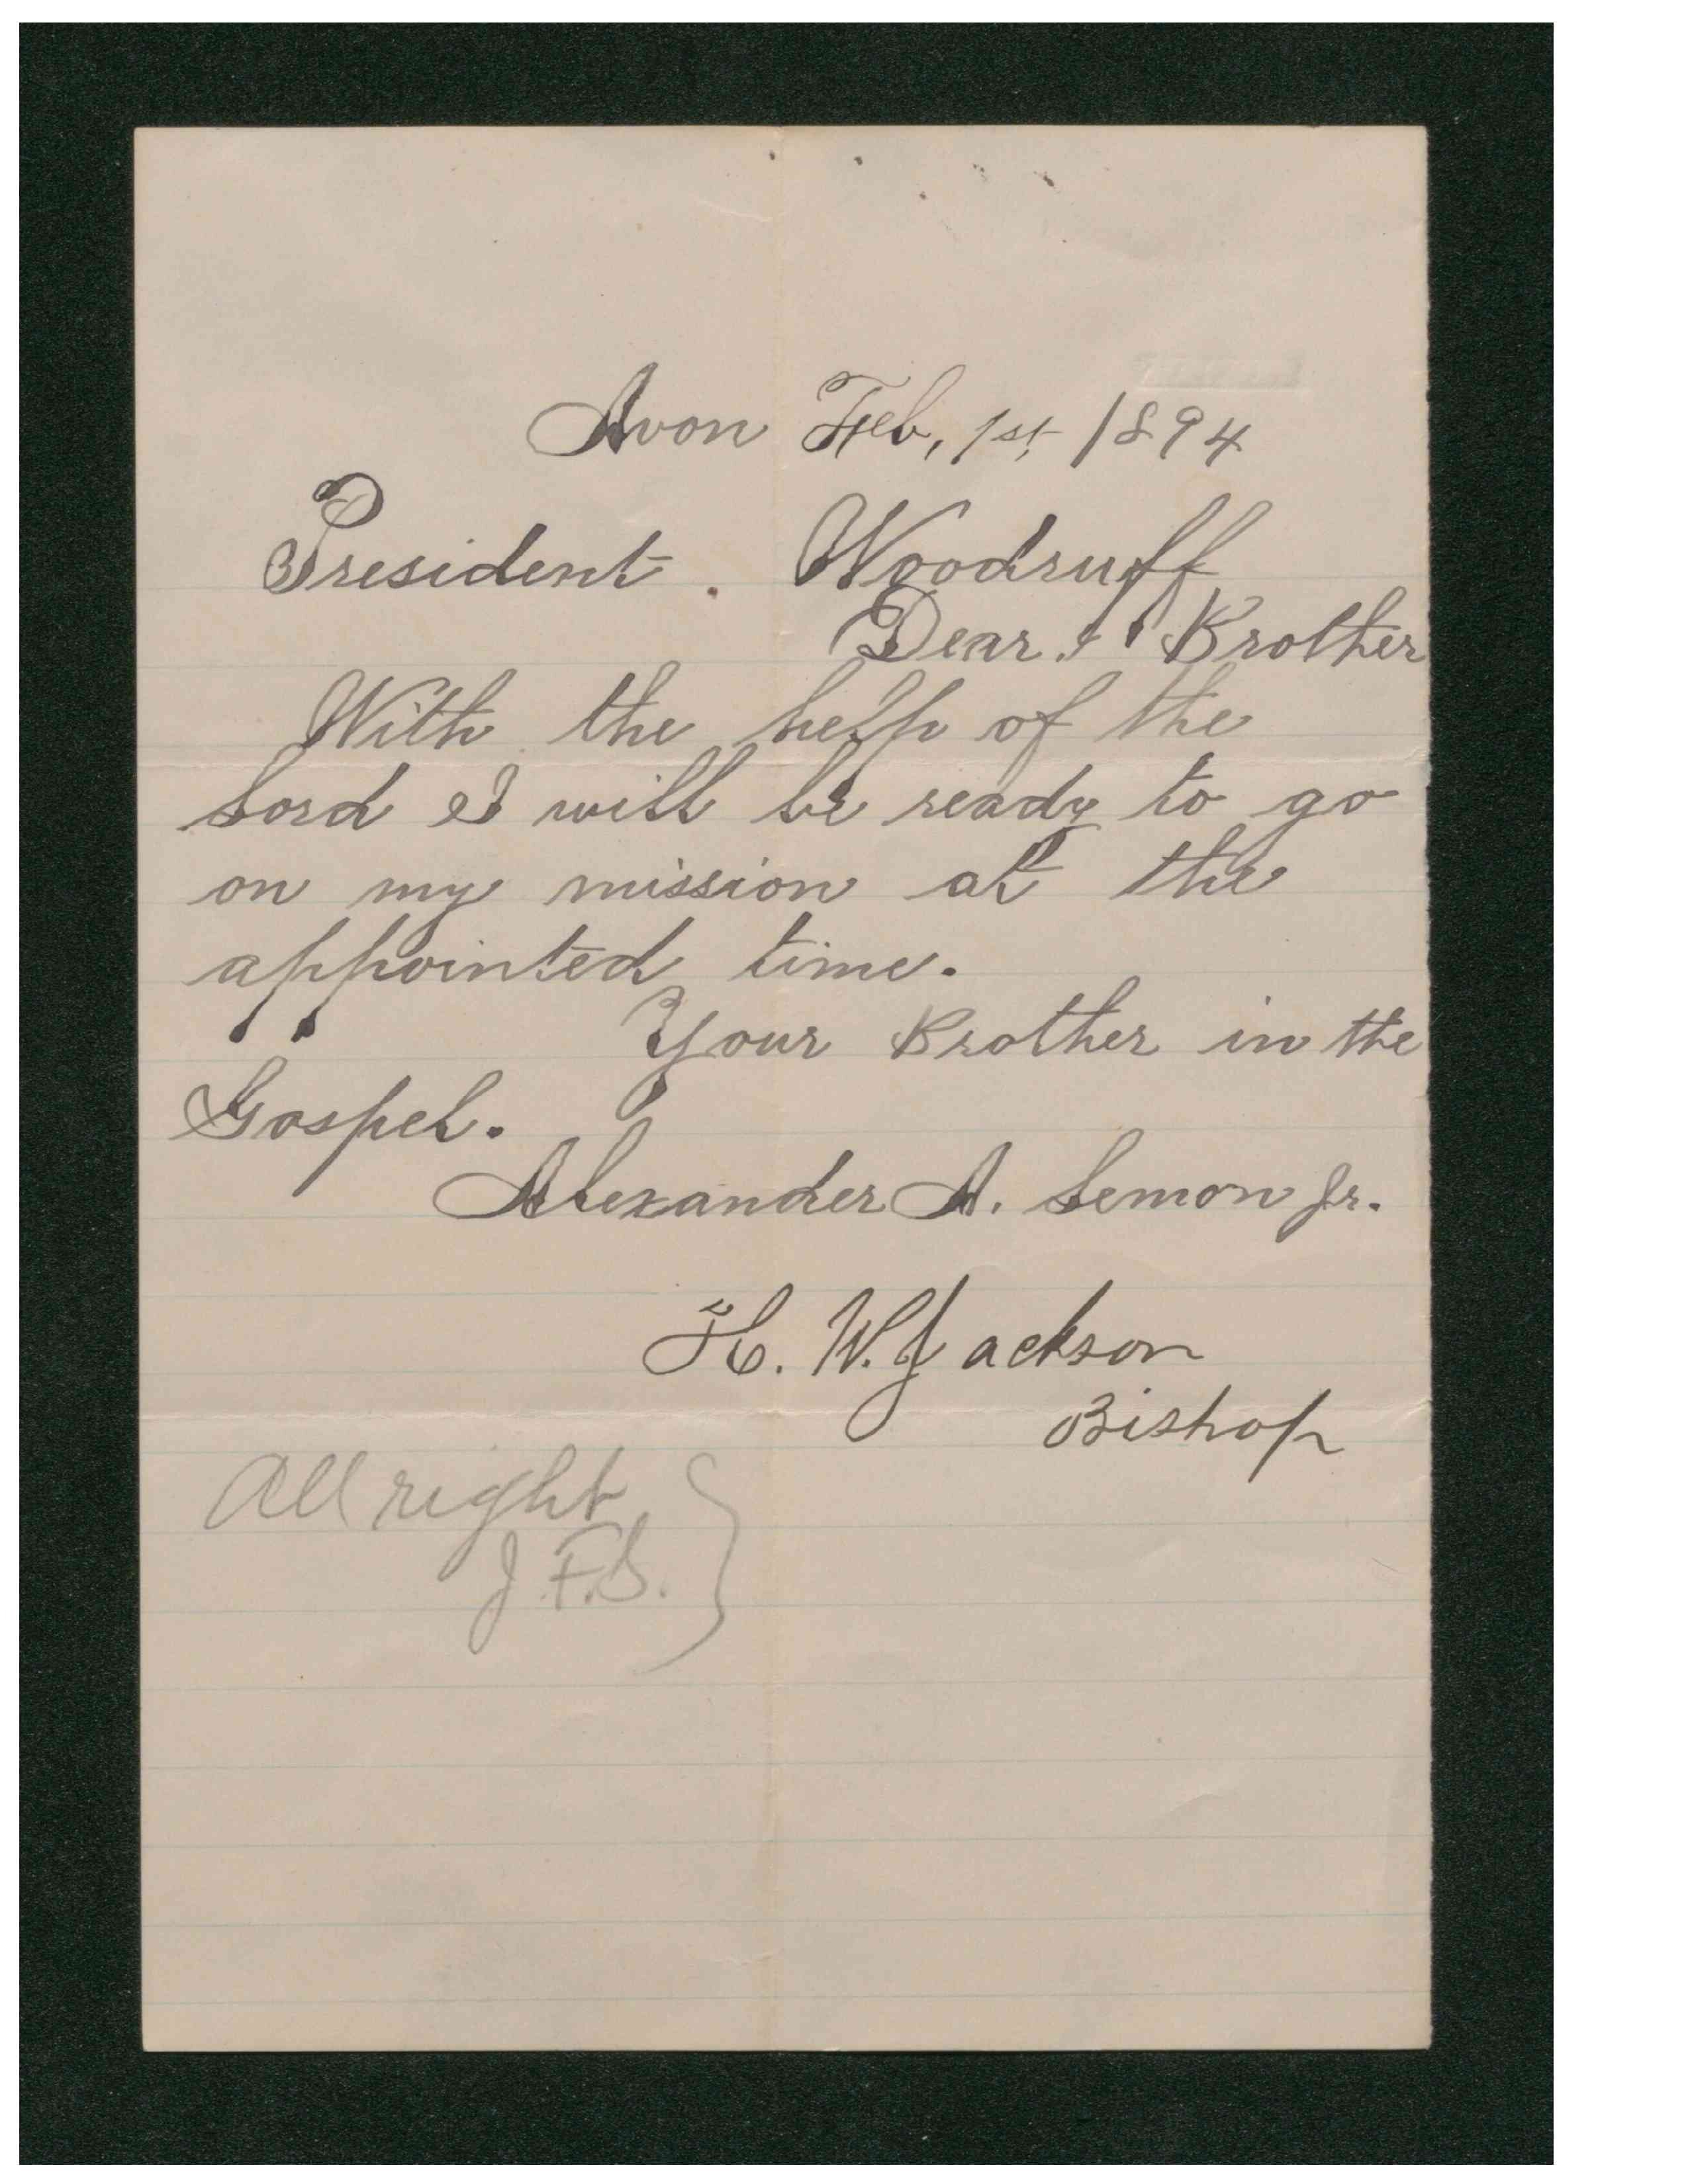 Avon Feb, 1st 1894
President. Woodruff
Dear. Brother
With the help of the
Lord I will be ready to go
on my mission at the
appointed time.
Your Brother in the
Gospel.
Alexander A. Lemon Jr.
H. W. Jackson
Bishop
All right
J. F. S.